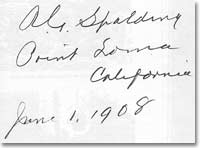 A.G. Spalding
Point Loma
California
June 1, 1908